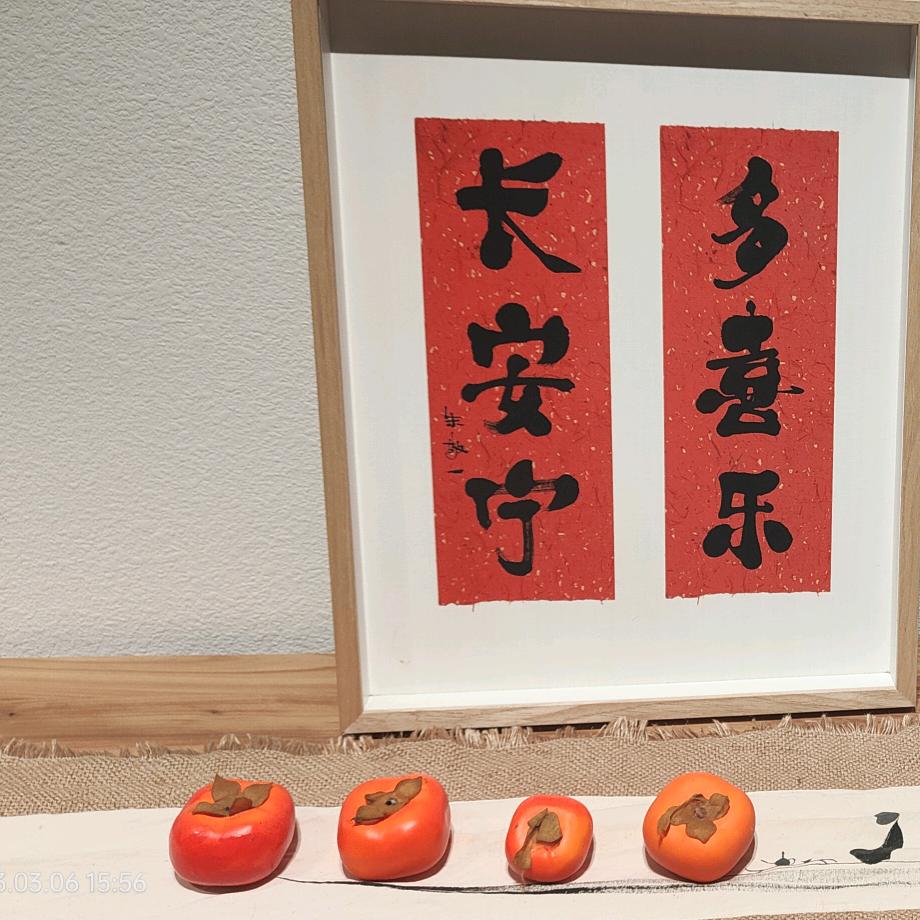 多喜乐
长安宁
朱敬一
3.03.06 15:56